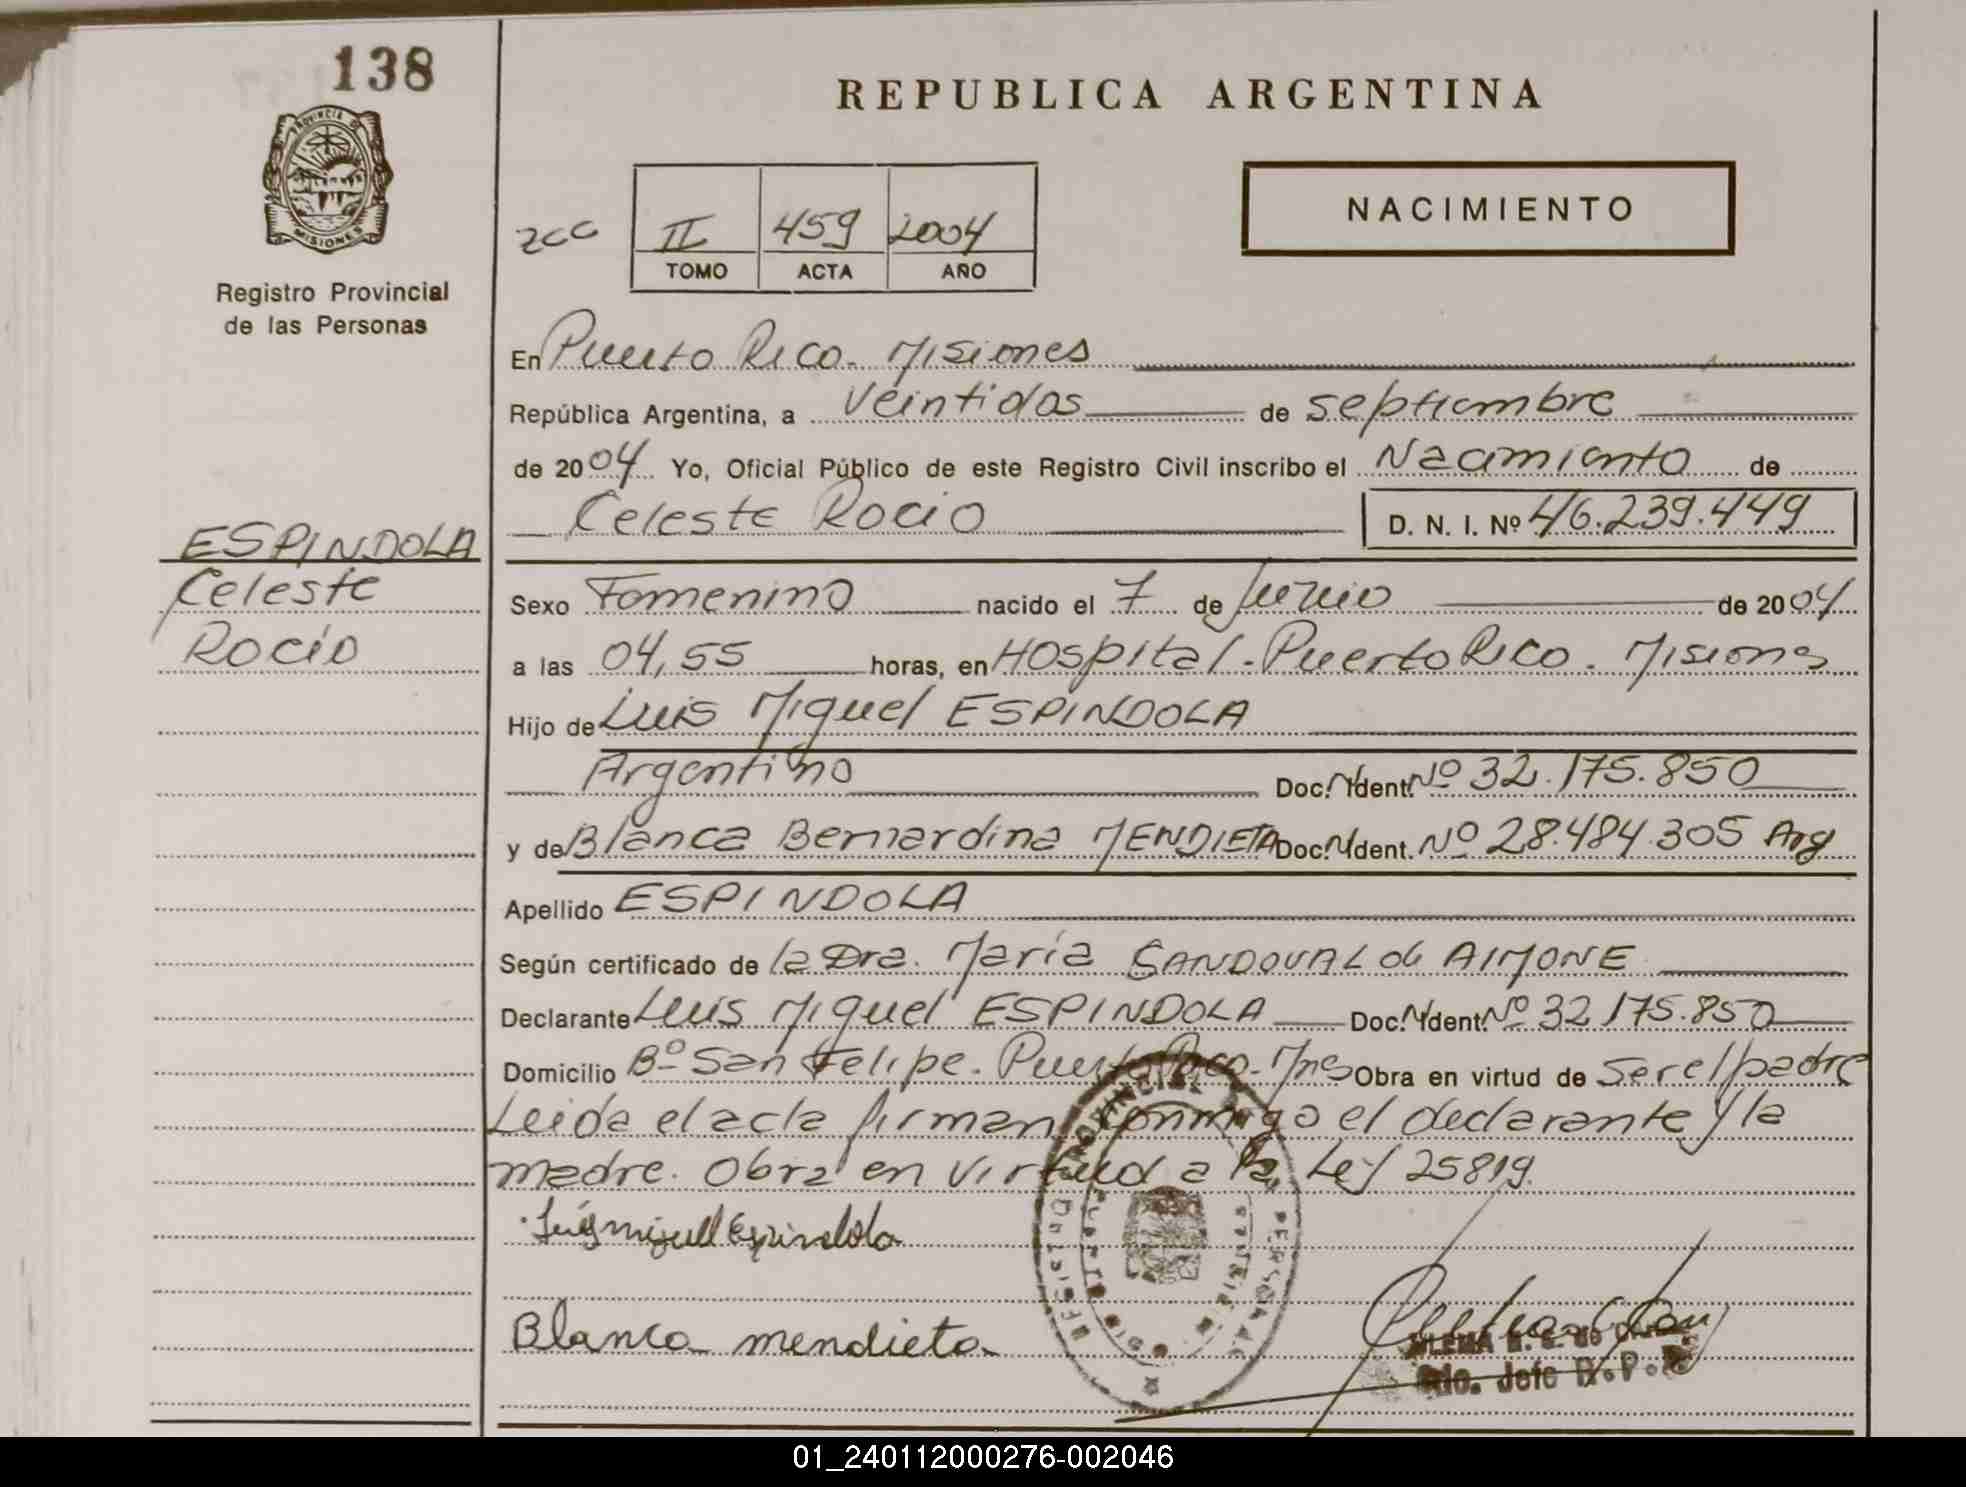 138
PROVINCIA DE
MISIONES
Registro Provincial
de las Personas
ESPINDOLA
Celeste
Rocío
REPUBLICA ARGENTINA
NACIMIENTO
II 459 2004
TOMO ACTA AÑO
En Puerto Rico. Misiones
República Argentina, a Veintidos de septiembre
de 2004 Yo, Oficial Público de este Registro Civil inscribo el Nacimiento de
Celeste Rocio D. N. I. Nº 46.239.449
Sexo Femenino nacido el 7 de Junio de 2004
a las 04,55 horas, en Hospital. Puerto Rico. Misiones
Hijo de Luis Miguel ESPINDOLA
Argentino Doc. N. Ident. Nº 32.175.850
y de Blanca Bernardina MENDIETA Doc. N. Ident. Nº 28.484.305 Arg
Apellido ESPINDOLA
Según certificado de la Dra. María SANDOVAL de AIMONE
Declarante Luis Miguel ESPINDOLA Doc. N. Ident. Nº 32.175.850
Domicilio Bº San Felipe. Puerto Rico. Mnes Obra en virtud de ser el padre
Leida el acta firman conmigo el declarante y la
madre. Obra en virtud a la Ley 25819.
Luis miguel Espindola
Blanca mendieta
Jefe R.P.
01_240112000276-002046